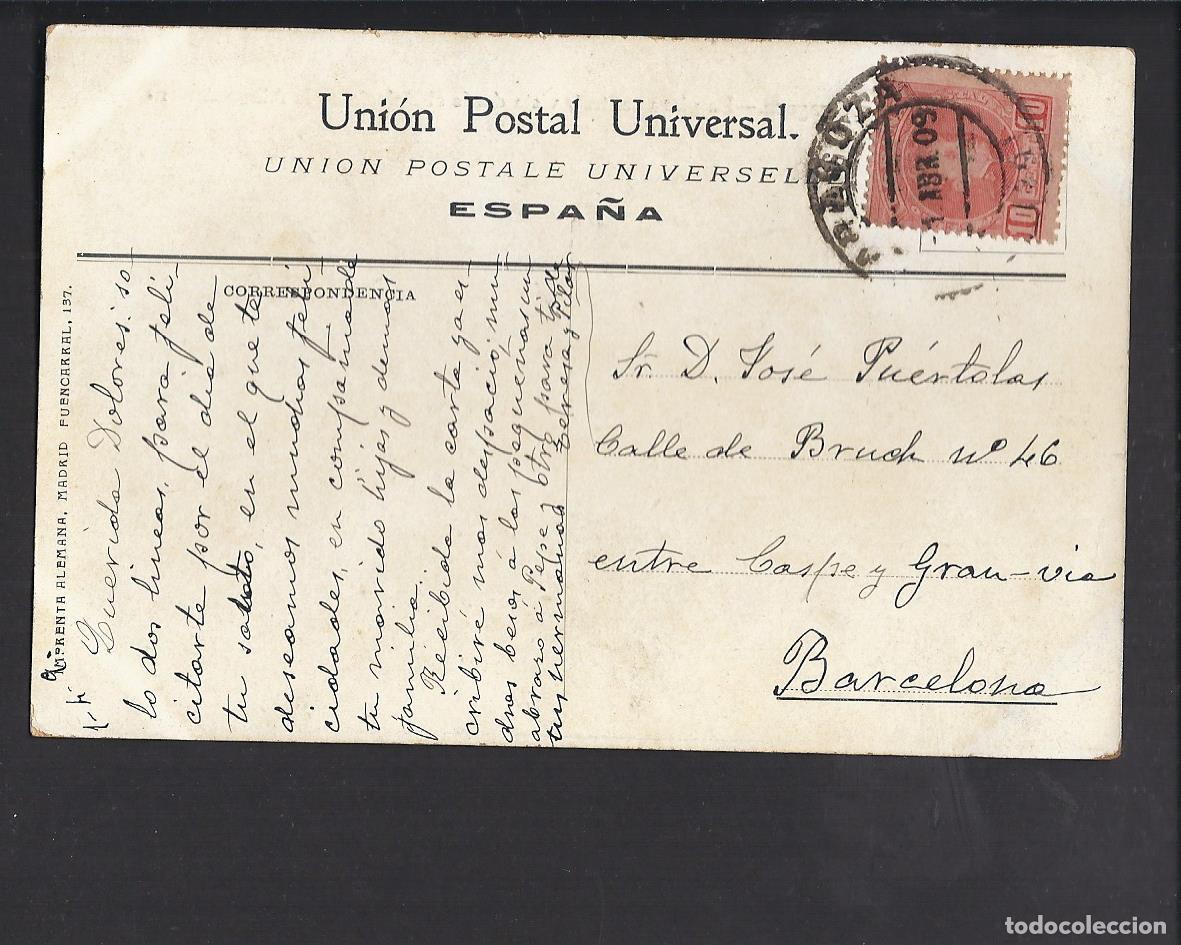 Unión Postal Universal.
UNION POSTALE UNIVERSEL
ESPAÑA
ZARAGOZA
1 ABR. 09
10 10
CORRESPONDENCIA
IMPRENTA ALEMANA, MADRID FUENCARRAL, 137.
Querida Dolores: so-
lo dos lineas, para feli-
citarte por el dia de
tu santo, en el que te
deseamos muchas feli-
cidades, en compañia de
tu marido hijas y demas
familia
Recibida la carta ya es-
cribiré mas despacio, mu-
chos besos á las pequeñas un
abrazo á Pepe y otro para ti de
tus hermanas Teresa y Pilar
Sr. D. José Puértolas
Calle de Bruch nº 46
entre Caspe y Gran-via
Barcelona
todocoleccion